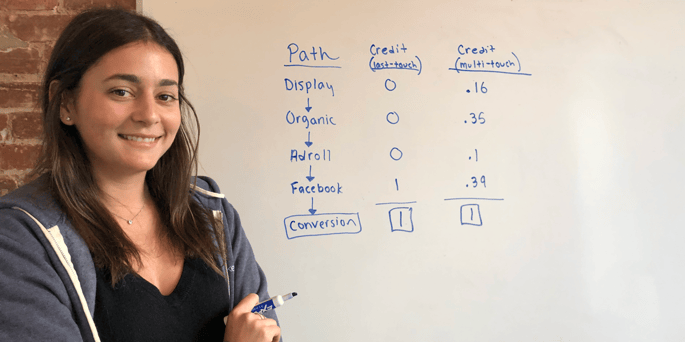 Path Credit (last-touch) Credit (multi-touch)
Display 0 .16
Organic 0 .35
Adroll 0 .1
Facebook 1 .39
Conversion 1 1